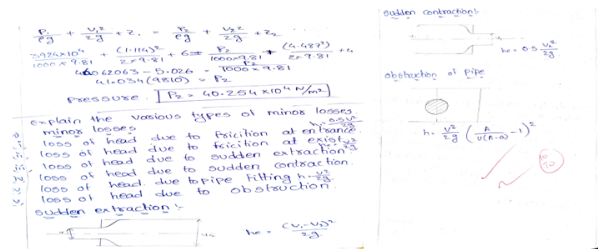 P₁/ρg + V₁²/2g + Z₁ = P₂/ρg + V₂²/2g + Z₂
39.24×10⁴/1000×9.81 + (1.114)²/2×9.81 + 6 = P₂/1000×9.81 + (4.487)²/2×9.81 + 4
- 5.026 = P₂/1000×9.81
41.034(9810) = P₂
Pressure P₂ = 40.254×10⁴ N/m²
explain the various types of minor losses
minor losses
loss of head due to friction at entrance
loss of head due to friction at exist
loss of head due to sudden extraction
loss of head due to sudden contraction
loss of head due to pipe fitting
loss of head due to obstruction
sudden extraction :-
he = (V₁-V₂)²/2g
sudden contraction:-
hc = 0.5 V₂²/2g
obstruction of pipe
h = V²/2g (A/c(A-a) - 1)²